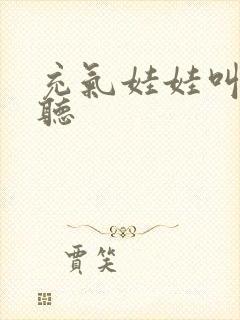 充氣娃娃叫
聽
賈笑